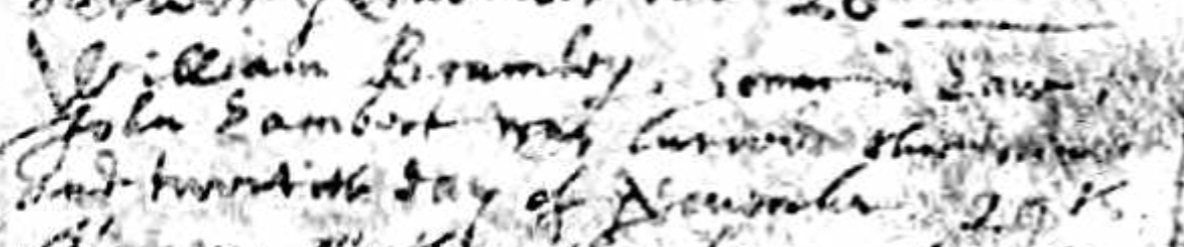 28
William Brumley, sonn in Law,
John Lambert was buried the nine
and twentith day of November 29th